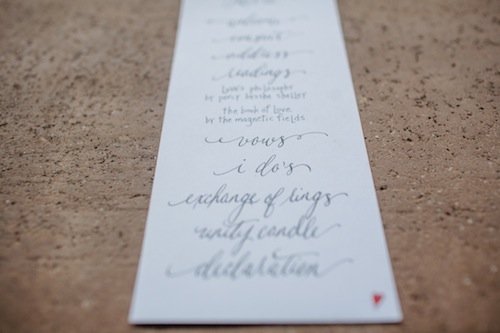 welcome
consent
address
readings
love's philosophy
by percy bysshe shelley
the book of love
by the magnetic fields
vows
i do's
exchange of rings
unity candle
declaration